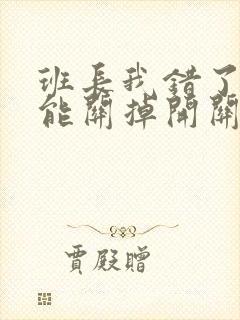 班長我錯了
能關掉開關
賈殿贈